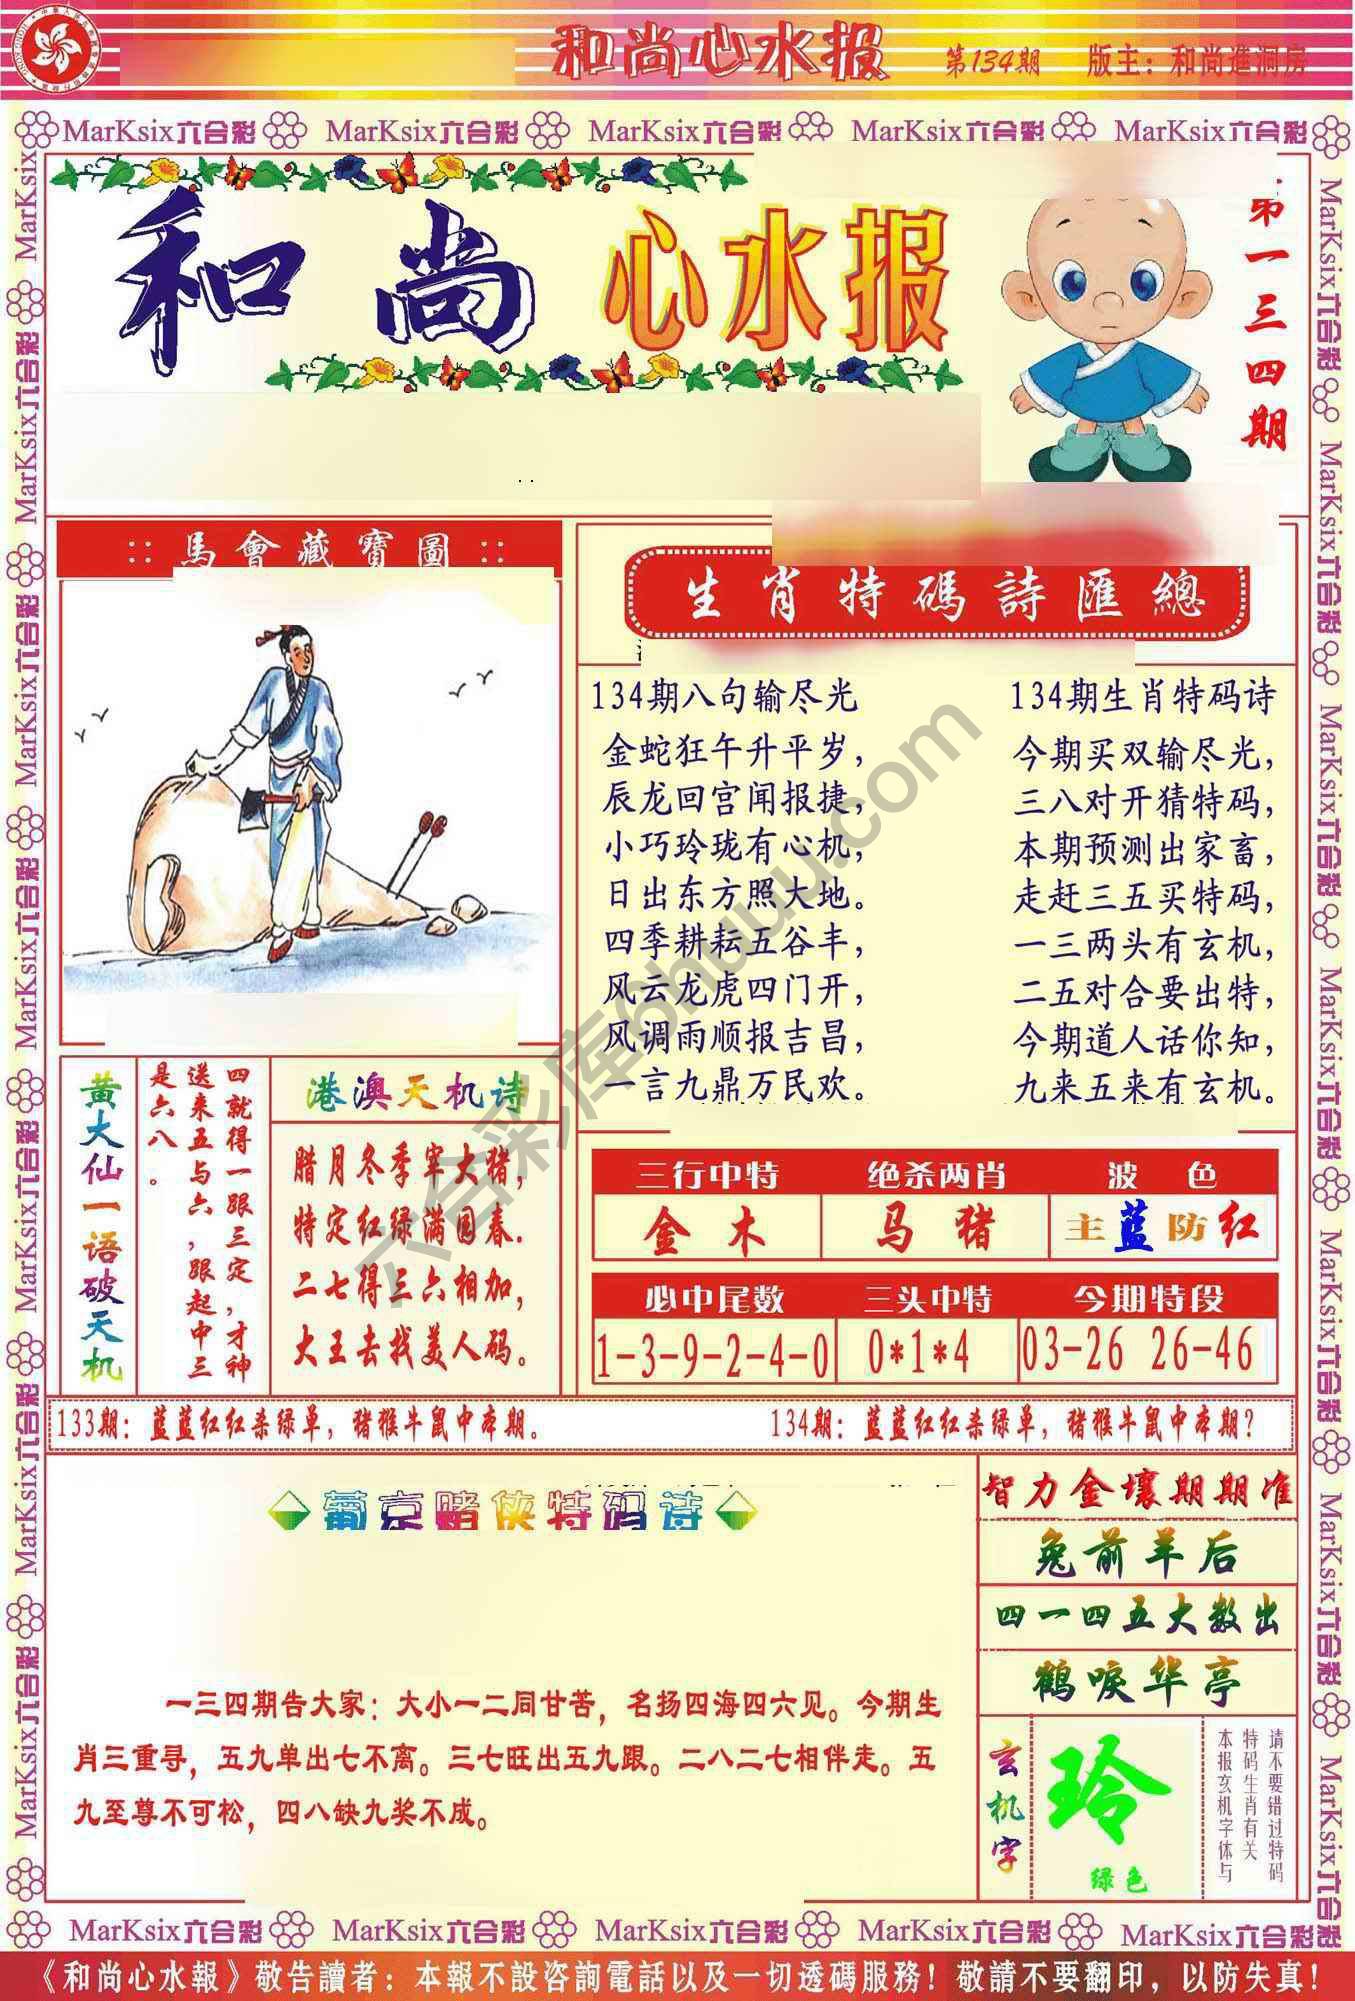 和尚心水报 第134期 版主：和尚進洞房
MarKsix六合彩 MarKsix六合彩 MarKsix六合彩 MarKsix六合彩 MarKsix六合彩
和尚 心水报
第一三四期
:: 馬會藏寶圖 ::
生肖特碼詩匯總
134期八句输尽光
金蛇狂午升平岁，
辰龙回宫闻报捷，
小巧玲珑有心机，
日出东方照大地。
四季耕耘五谷丰，
风云龙虎四门开，
风调雨顺报吉昌，
一言九鼎万民欢。
134期生肖特码诗
今期买双输尽光，
三八对开猜特码，
本期预测出家畜，
走赶三五买特码，
一三两头有玄机，
二五对合要出特，
今期道人话你知，
九来五来有玄机。
黄大仙一语破天机
四就得一跟三定，才神
送来五与六，跟起中三
是六八。
港澳天机诗
腊月冬季宰大猪，
特定红绿满园春．
二七得三六相加，
大王去找美人码。
三行中特 绝杀两肖 波色
金木 马猪 主蓝防红
必中尾数 三头中特 今期特段
1-3-9-2-4-0 0*1*4 03-26 26-46
133期：蓝蓝红红杀绿单，猪猴牛鼠中本期。 134期：蓝蓝红红杀绿单，猪猴牛鼠中本期？
葡京赌侠特码诗
一三四期告大家：大小一二同甘苦，名扬四海四六见。今期生
肖三重寻，五九单出七不离。三七旺出五九跟。二八二七相伴走。五
九至尊不可松，四八缺九奖不成。
智力金壤期期准
兔前羊后
四一四五大数出
鹤唳华亭
玄机字
玲
绿色
请不要错过特码
特码生肖有关
本报玄机字体与
六合彩库6huuu.com
MarKsix六合彩 MarKsix六合彩 MarKsix六合彩 MarKsix六合彩 MarKsix六合彩
《和尚心水報》敬告讀者：本報不設咨詢電話以及一切透碼服務！敬請不要翻印，以防失真！